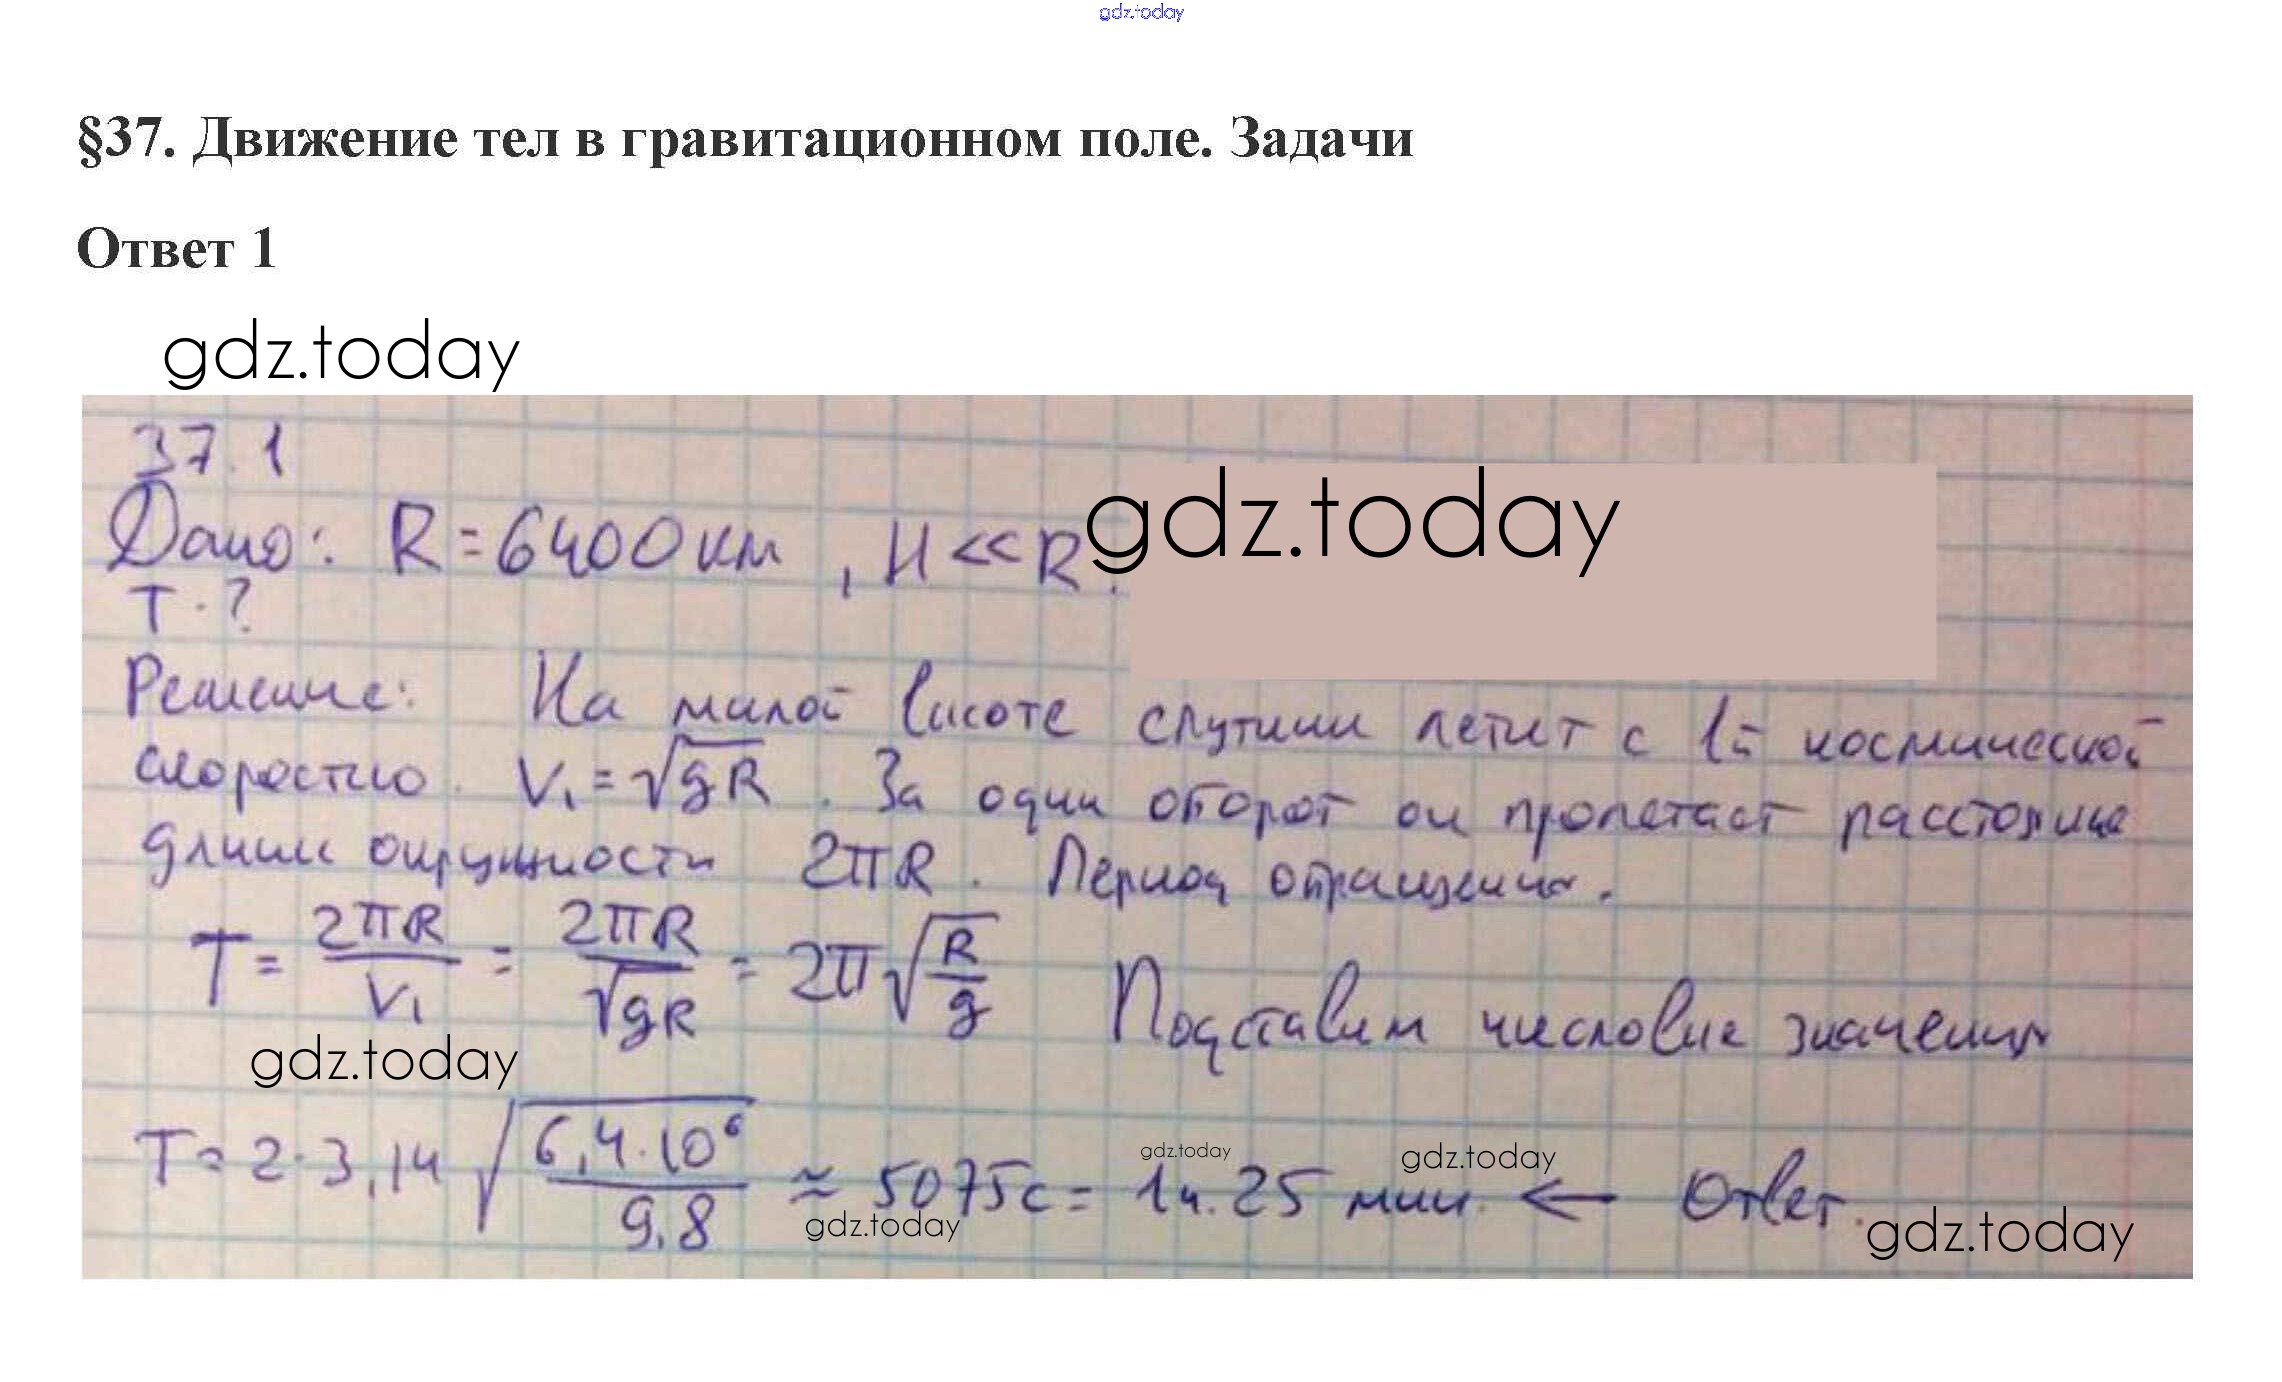 gdz.today
§37. Движение тел в гравитационном поле. Задачи
Ответ 1
gdz.today
37.1
Дано: R = 6400 км, H << R.
gdz.today
T - ?
Решение: На малой высоте спутник летит с 1й космической
скоростью. V₁ = √gR. За один оборот он пролетает расстояние
длины окружности 2πR. Период обращения.
T = 2πR/V₁ = 2πR/√gR = 2π√R/g Подставим числовые значения
gdz.today
T = 2·3,14 √6,4·10⁶/9,8 ≈ 5075с = 1ч. 25 мин. ← Ответ.
gdz.today
gdz.today
gdz.today
gdz.today